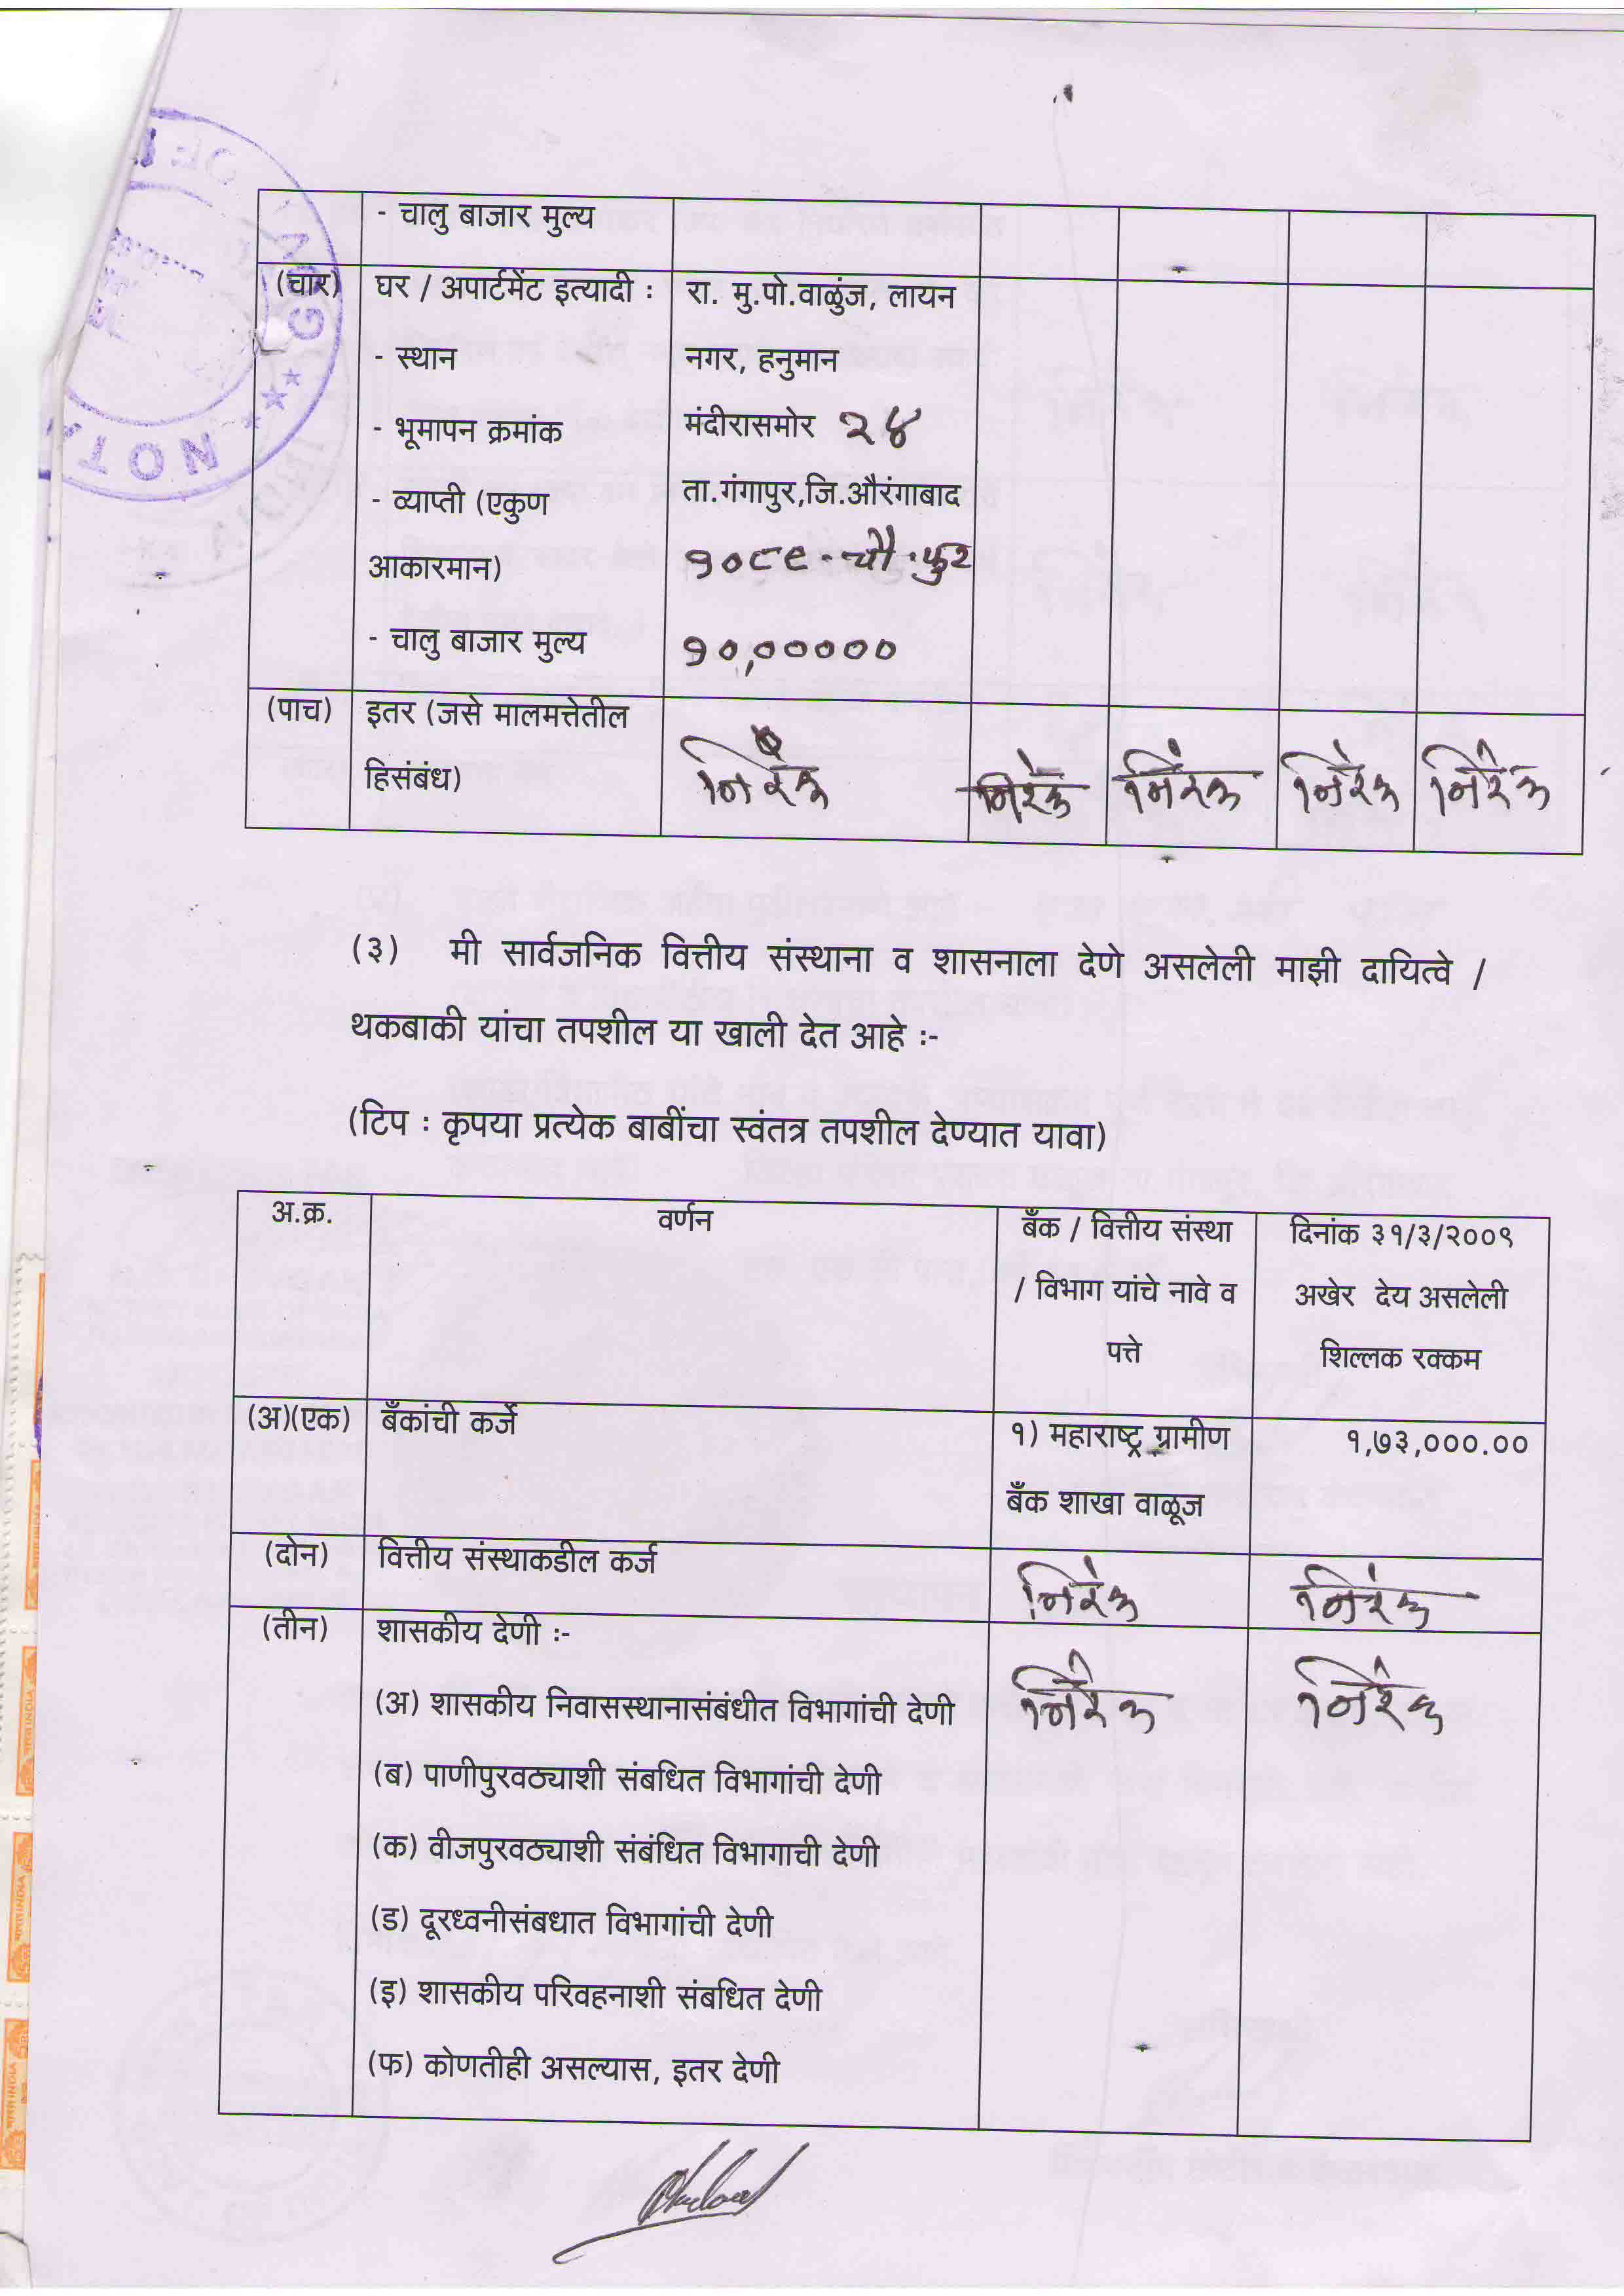 - चालु बाजार मुल्य
(चार) घर / अपार्टमेंट इत्यादी : रा. मु.पो.वाळुंज, लायन
- स्थान नगर, हनुमान
- भूमापन क्रमांक मंदीरासमोर २४
- व्याप्ती (एकुण ता.गंगापुर,जि.औरंगाबाद
आकारमान) १०८९ - चौ.फुट
- चालु बाजार मुल्य १०,०००००
(पाच) इतर (जसे मालमत्तेतील
हिसंबंध) निरंक निरंक निरंक निरंक निरंक
(३) मी सार्वजनिक वित्तीय संस्थाना व शासनाला देणे असलेली माझी दायित्वे /
थकबाकी यांचा तपशील या खाली देत आहे :-
(टिप : कृपया प्रत्येक बाबींचा स्वंतत्र तपशील देण्यात यावा)
अ.क्र. वर्णन बँक / वित्तीय संस्था दिनांक ३१/३/२००९
/ विभाग यांचे नावे व अखेर देय असलेली
पत्ते शिल्लक रक्कम
(अ)(एक) बँकांची कर्जे १) महाराष्ट्र ग्रामीण १,७३,०००.००
बँक शाखा वाळूज
(दोन) वित्तीय संस्थाकडील कर्ज निरंक निरंक
(तीन) शासकीय देणी :-
(अ) शासकीय निवासस्थानासंबंधीत विभागांची देणी निरंक निरंक
(ब) पाणीपुरवठ्याशी संबधित विभागांची देणी
(क) वीजपुरवठ्याशी संबंधित विभागाची देणी
(ड) दूरध्वनीसंबधात विभागांची देणी
(इ) शासकीय परिवहनाशी संबधित देणी
(फ) कोणतीही असल्यास, इतर देणी